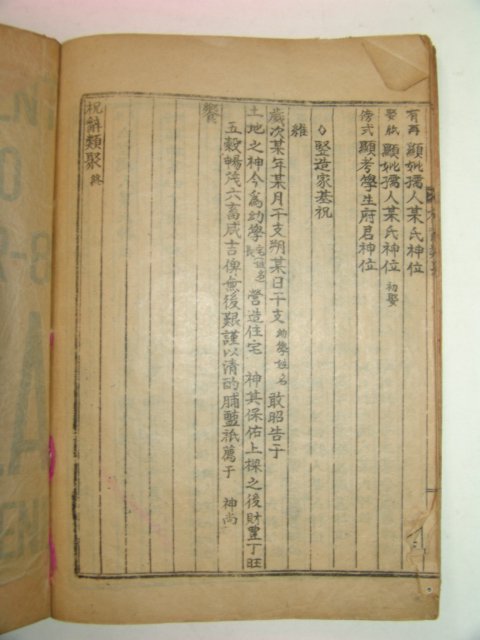 有再 顯妣孺人某氏神位
娶祝 顯妣孺人某氏神位 初娶
傍式 顯考學生府君神位
◇竪造家基祝
維
歲次某年某月干支朔某日干支幼學姓名 敢昭告于
土地之神今爲幼學 營造住宅 神其保佑上樑之後財豊丁旺
五穀暢茂六畜咸吉俾無後艱謹以清酌脯醢祗薦于 神尚
饗
祝辭類聚 終